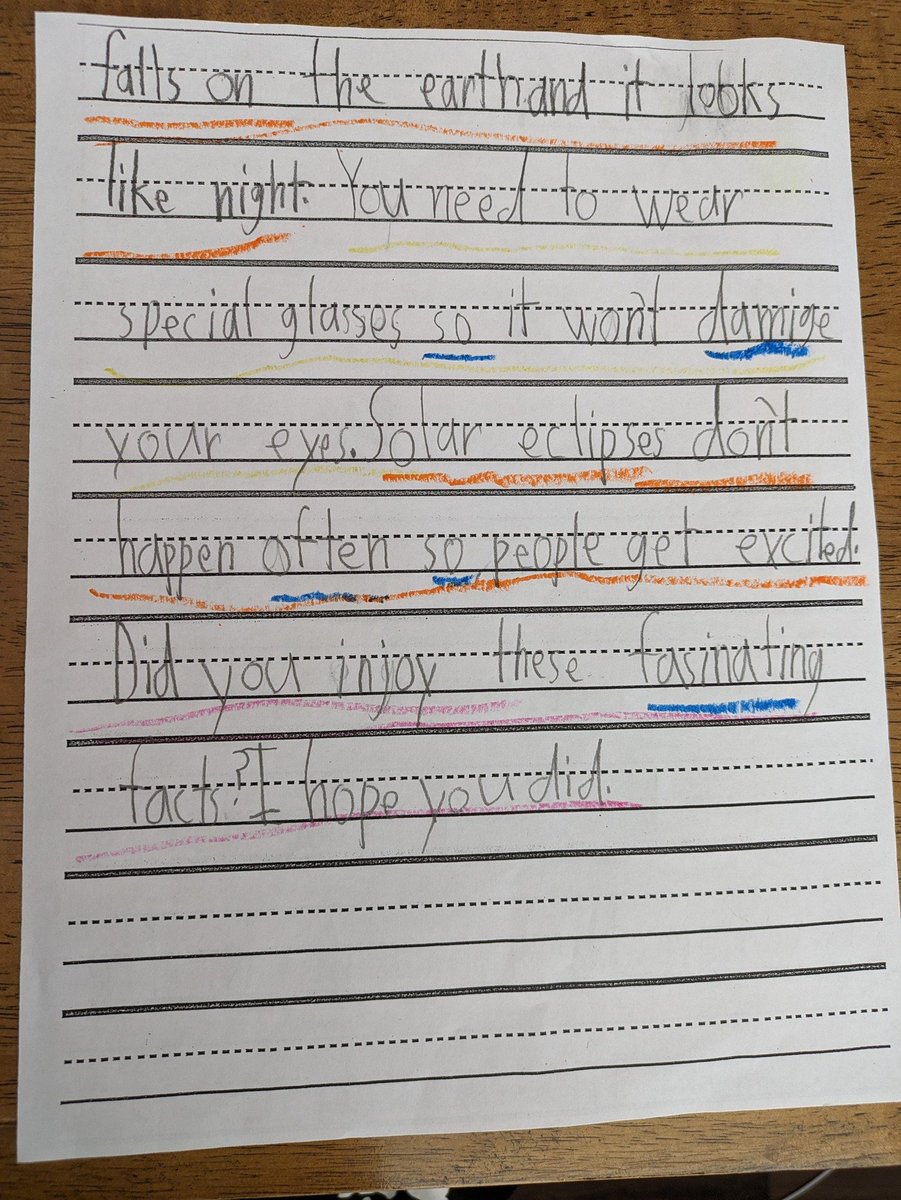 falls on the earth and it looks
like night. You need to wear
special glasses so it won't damige
your eyes. Solar eclipses don't
happen often so people get excited.
Did you injoy these fasinating
facts? I hope you did.